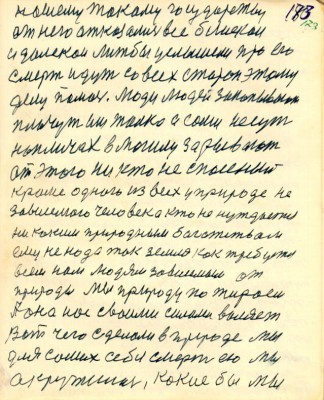 183
173
нашему такому государству
от него отказались все близкия
и далекои либы услышем про его
смерт идут со всех старон этому
делу помоч. Люди людей закапывают
плачут им толко а сами несут
на пличах в могилу зарывают
от этого ни кто не спасеный
кроме одного из всех у природе не
зависемого человека кто не нуждается
ни какими природными багатствами
ему не нода так земля как требуется
всем нам людям зависемым от
природы мы природу по тираем
А она нас своими силами валяет
Вот чего сделали в природе мы
для самих себя смерт ею мы
акружины, какие бы мы